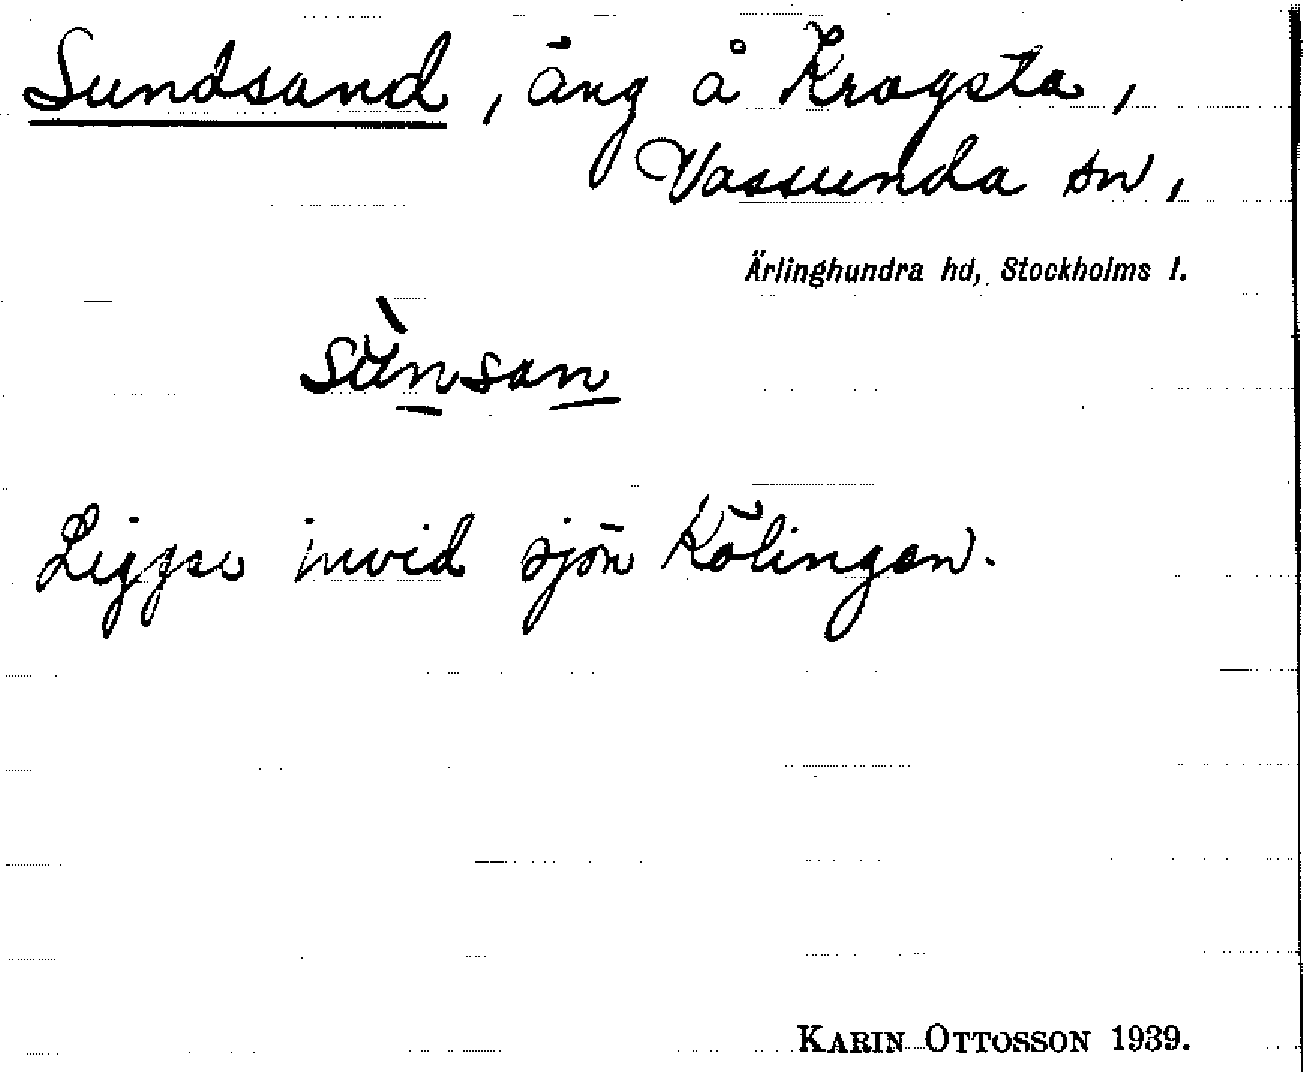 Sundsand, äng å Kragsta,
Vassunda sn,
Ärlinghundra hd, Stockholms l.
sùnsan
Ligger invid sjön Kölingen.
KARIN OTTOSSON 1939.